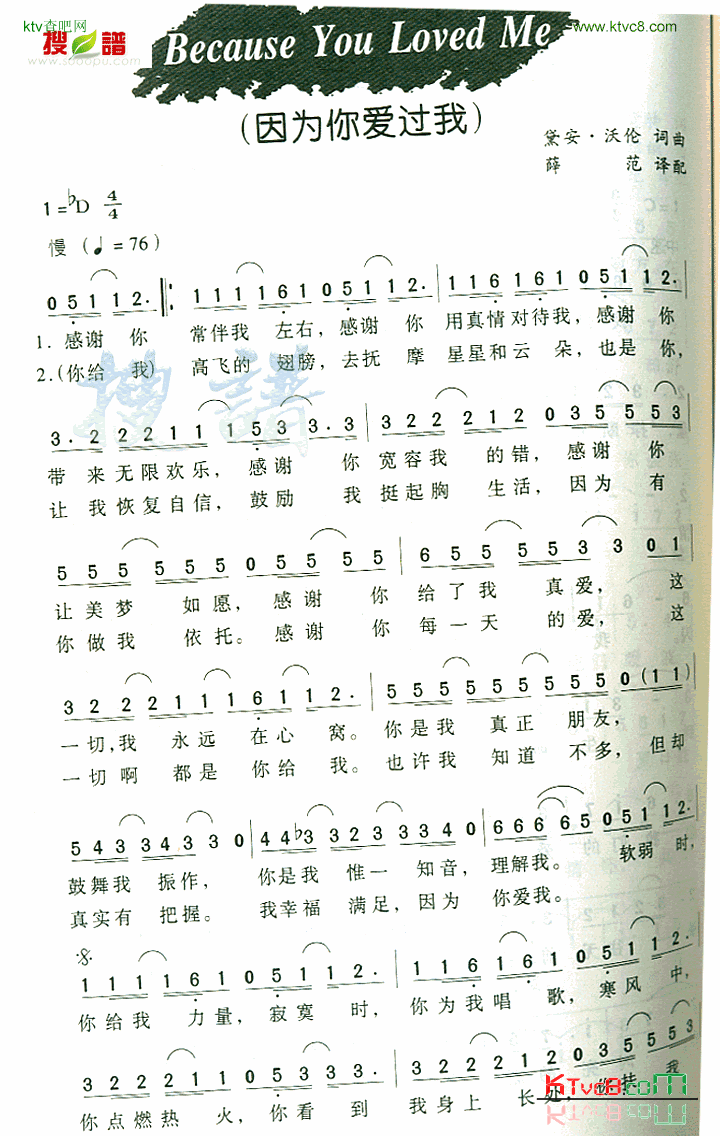 ktv查吧网
www.ktvc8.com
搜谱
www.sooopu.com
Because You Loved Me
(因为你爱过我)
黛安·沃伦 词曲
薛 范 译配
1=♭D 4/4
慢 (♩=76)
0 5 1 1 1 2. 1 1 1 1 6 1 0 5 1 1 1 2. 1 1 6 1 6 1 0 5 1 1 2.
1. 感谢 你 常伴我 左右, 感谢 你 用真情对待我, 感谢 你
2.(你给 我) 高飞的 翅膀, 去抚 摩 星星和云 朵, 也是 你,
3. 2 2 2 1 1 1 5 3 3. 3 3 2 2 2 1 2 0 3 5 5 5 3
带 来无限欢乐, 感谢 你 宽容我 的错, 感谢 你
让 我恢复自信, 鼓励 我 挺起胸 生活, 因为 有
5 5 5 5 5 5 0 5 5 5 5 6 5 5 5 5 3 3 0 1
让 美梦 如愿, 感谢 你 给了我 真爱, 这
你 做我 依托。感谢 你 每一天 的爱, 这
3 2 2 2 1 1 1 6 1 1 1 2. 5 5 5 5 5 5 5 5 5 0 (1 1)
一切,我 永远 在心 窝。你是我 真正 朋友,
一切啊 都是 你给 我。也许我 知道 不多, 但却
5 4 3 3 4 3 3 0 4 4 ♭3 3 2 3 3 4 0 6 6 6 6 5 0 5 1 1 2.
鼓舞我 振作, 你是我 惟一 知音, 理解我。 软弱 时,
真实有 把握。 我幸福 满足, 因为 你爱我。
1 1 1 1 6 1 0 5 1 1 1 2. 1 1 6 1 6 1 0 5 1 1 1 2.
你给我 力量, 寂寞 时, 你为我唱 歌, 寒风 中,
3 2 2 2 1 1 1 5 3 3 2 2 2 1 2 0 3 5 5 5 3
你点燃热 火, 你看 到 我身上 长处, 你扶 我
KTvc8.coM
KTvc8.coM